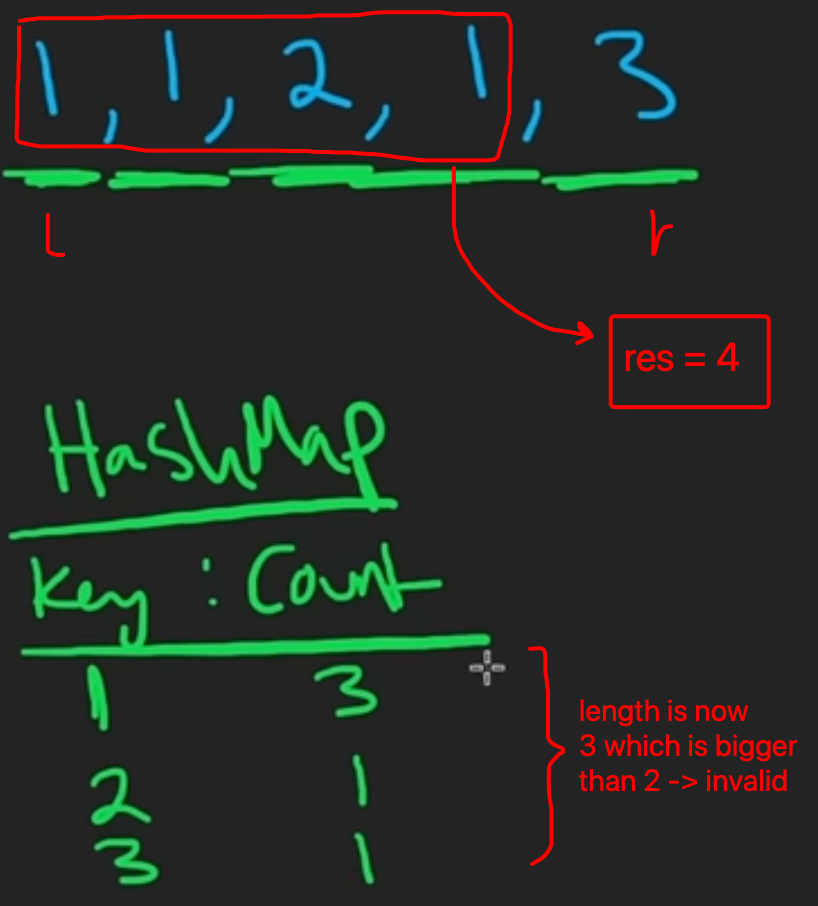 1, 1, 2, 1, 3
L r
res = 4
HashMap
Key : Count
1 3
2 1
3 1
length is now
3 which is bigger
than 2 -> invalid